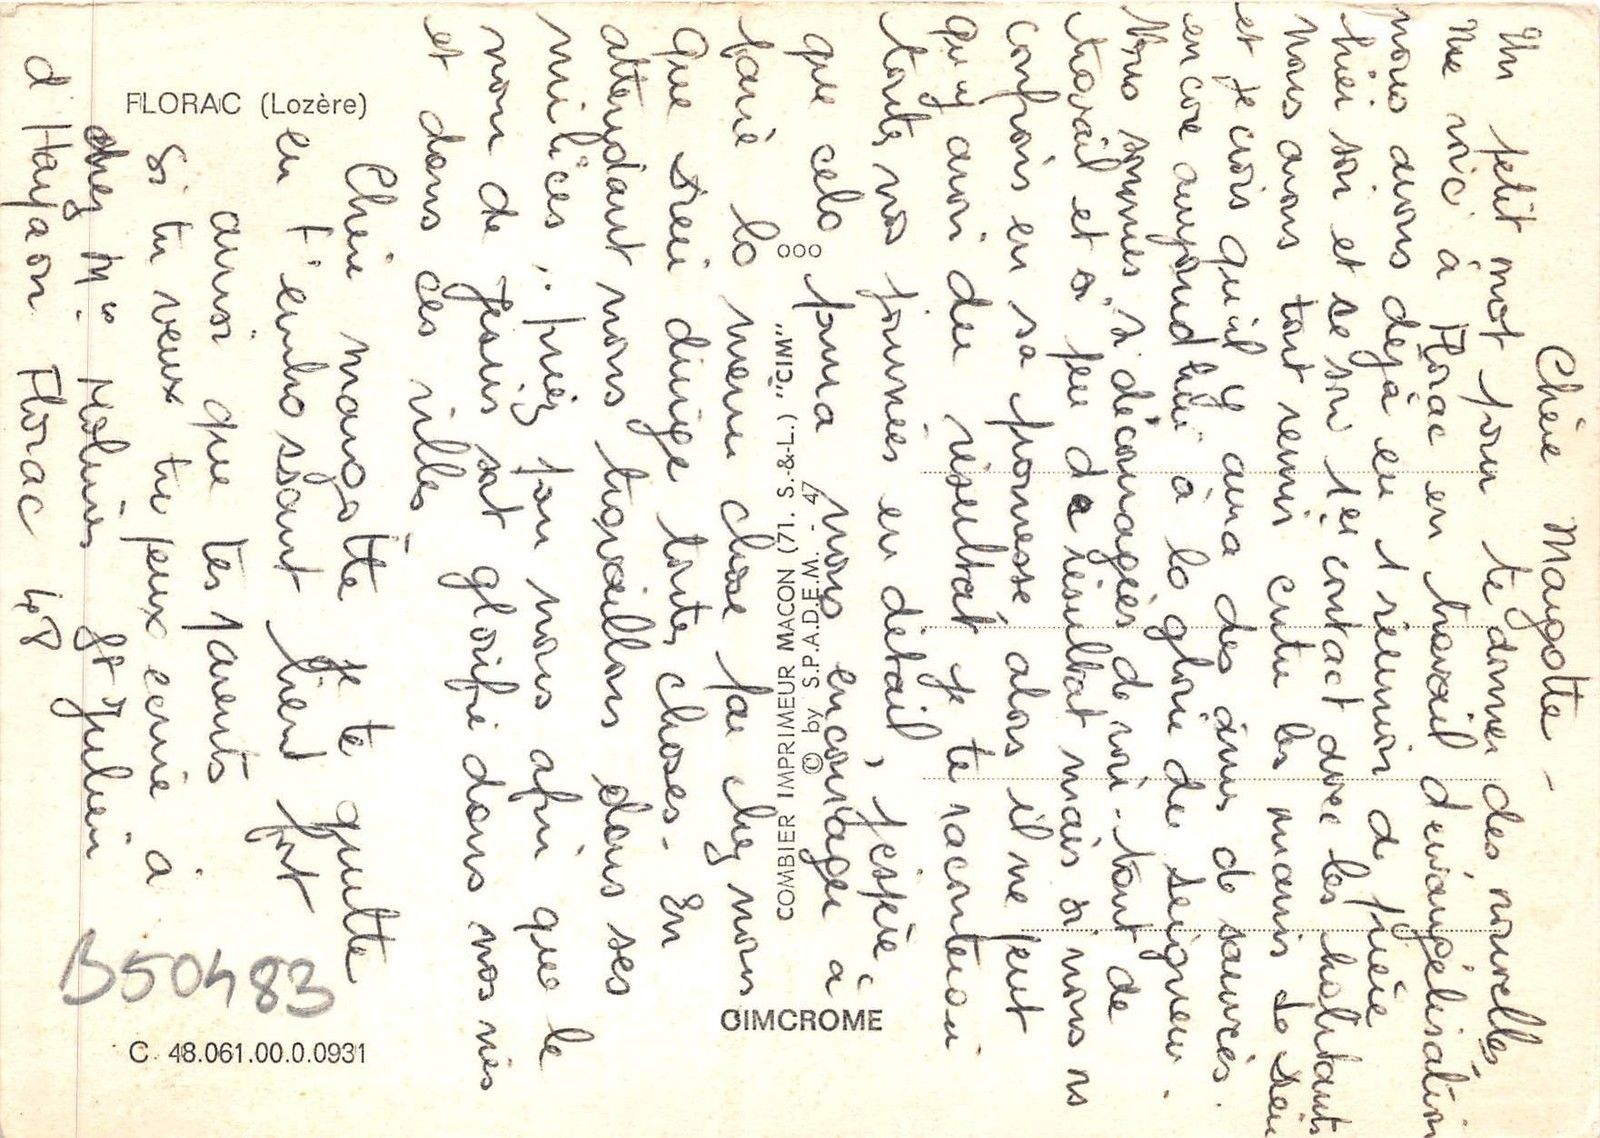 Chère Maugotte -
Un petit mot pour te donner des nouvelles
Me voici à Florac en travail d'évangélisation
nous avons dejà eu 1 reunion de prière
hier soir et ce soir 1er contact avec les habitants
Nous avons tout remis entre les mains de Dieu
et je crois qu'il y aura des âmes de sauvés
encore aujourd'hui à la gloire de Seigneur.
Nous sommes si découragées de voir tant de
travail et si peu de résultat mais si nous ns
confions en sa promesse alors il ne peut
qu'y avoir du résultat je te raconterai
toutes nos journées en détail, j'espère
que cela pourra vous encourager à
faire la meme chose par chez nous
que Dieu dirige toutes choses. En
attendant nous travaillons dans ses
milices. priez pour nous afin que le
nom de Jesus soit glorifié dans nos vies
et dans ces villes
Chère maugotte je te quitte
en t'embrassant bien fort
ainsi que tes parents
Si tu veux tu peux ecrire à
chez Mr Molines St Julien
d Harpaon Florac 48
FLORAC (Lozère)
ooo
COMBIER IMPRIMEUR MACON (71. S.-&-L.) "CIM"
© by S.P.A.D.E.M. - 47
CIMCROME
B50483
C. 48.061.00.0.0931